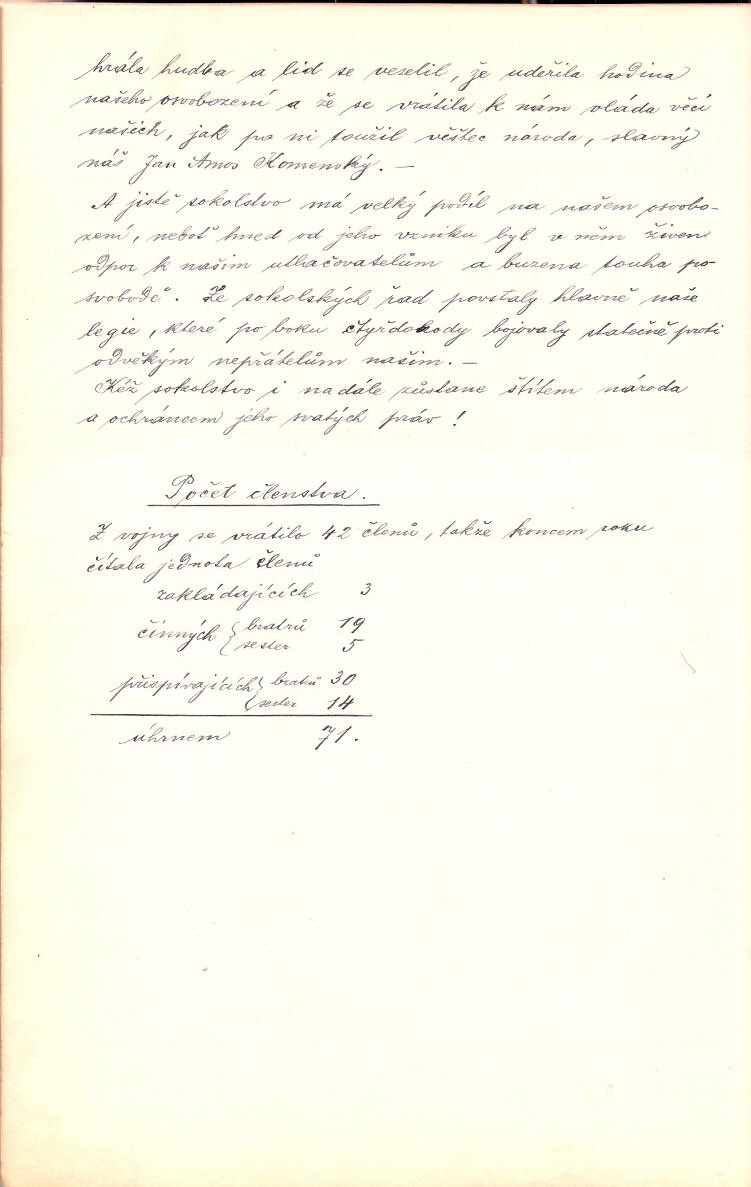 hrála hudba a lid se veselil, že udeřila hodina
našeho osvobození a že se vrátila k nám vláda věcí
našich, jak po ni toužil věštec národa, slavný
náš Jan Amos Komenský. —
A jistě sokolstvo má velký podíl na našem osvobo-
zení, neboť hned od jeho vzniku byl v něm živen
odpor k našim utlačovatelům a buzena touha po
svobodě. Ze sokolských řad povstaly hlavně naše
legie, které po boku čtyřdohody bojovaly statečně proti
odvěkým nepřátelům našim. —
Kéž sokolstvo i nadále zůstane štítem národa
a ochráncem jeho svatých práv!
Počet členstva.
Z vojny se vrátilo 42 členů, takže koncem roku
čítala jednota členů
zakládajících 3
činných { bratrů 19
sester 5
přispívajících { bratrů 30
sester 14
úhrnem 71.